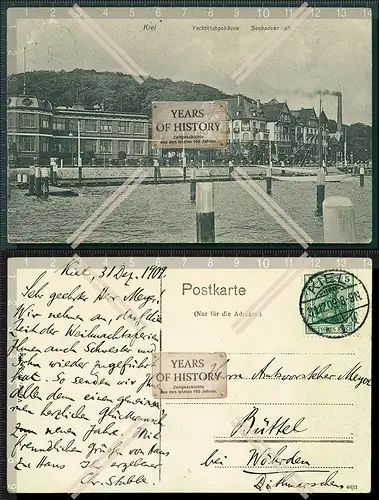 Kiel
Yachtklubgebäude
Seebadeanstalt
YEARS
OF HISTORY
Zeitgeschichte
aus den letzten 100 Jahren.
Kiel, 31 Dez. 1909.
Sehr geehrter Herr Meyer!
Wir nehmen an, dass die
Zeit der Weihnachtsferien
Ihnen auch Schwester und
Sohn wieder zugeführt
hat. So senden wir Ihnen
allen denn einen gemeinsa-
men herzlichen Glückwunsch
zum neuen Jahre. Mit
freundlichen Grüßen von Haus
zu Haus Ihr ergebener
Postkarte
(Nur für die Adresse)
KIEL
31.12.09
YEARS
OF HISTORY
Zeitgeschichte
aus den letzten 100 Jahren.
Herrn Amtsvorsteher Meyer
Büttel
bei Wöhrden
Dithmarschen